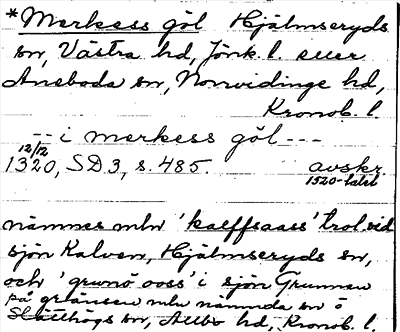 *Merkess göl Hjälmseryds
sn, Västra hd, Jönk. l. eller
Aneboda sn, Norrvidinge hd,
Kronob. l.
-- i merkess göl ---
12/12
1320, SD3, s. 485. avskr.
1520-talet
nämnes mln 'kalffsaass' trol. vid
sjön Kalven, Hjälmseryds sn,
och 'grwnö ooss' i sjön Grunnen
på gränsen mln nämnda sn o
Slätthögs sn, Allbo hd, Kronob. l.